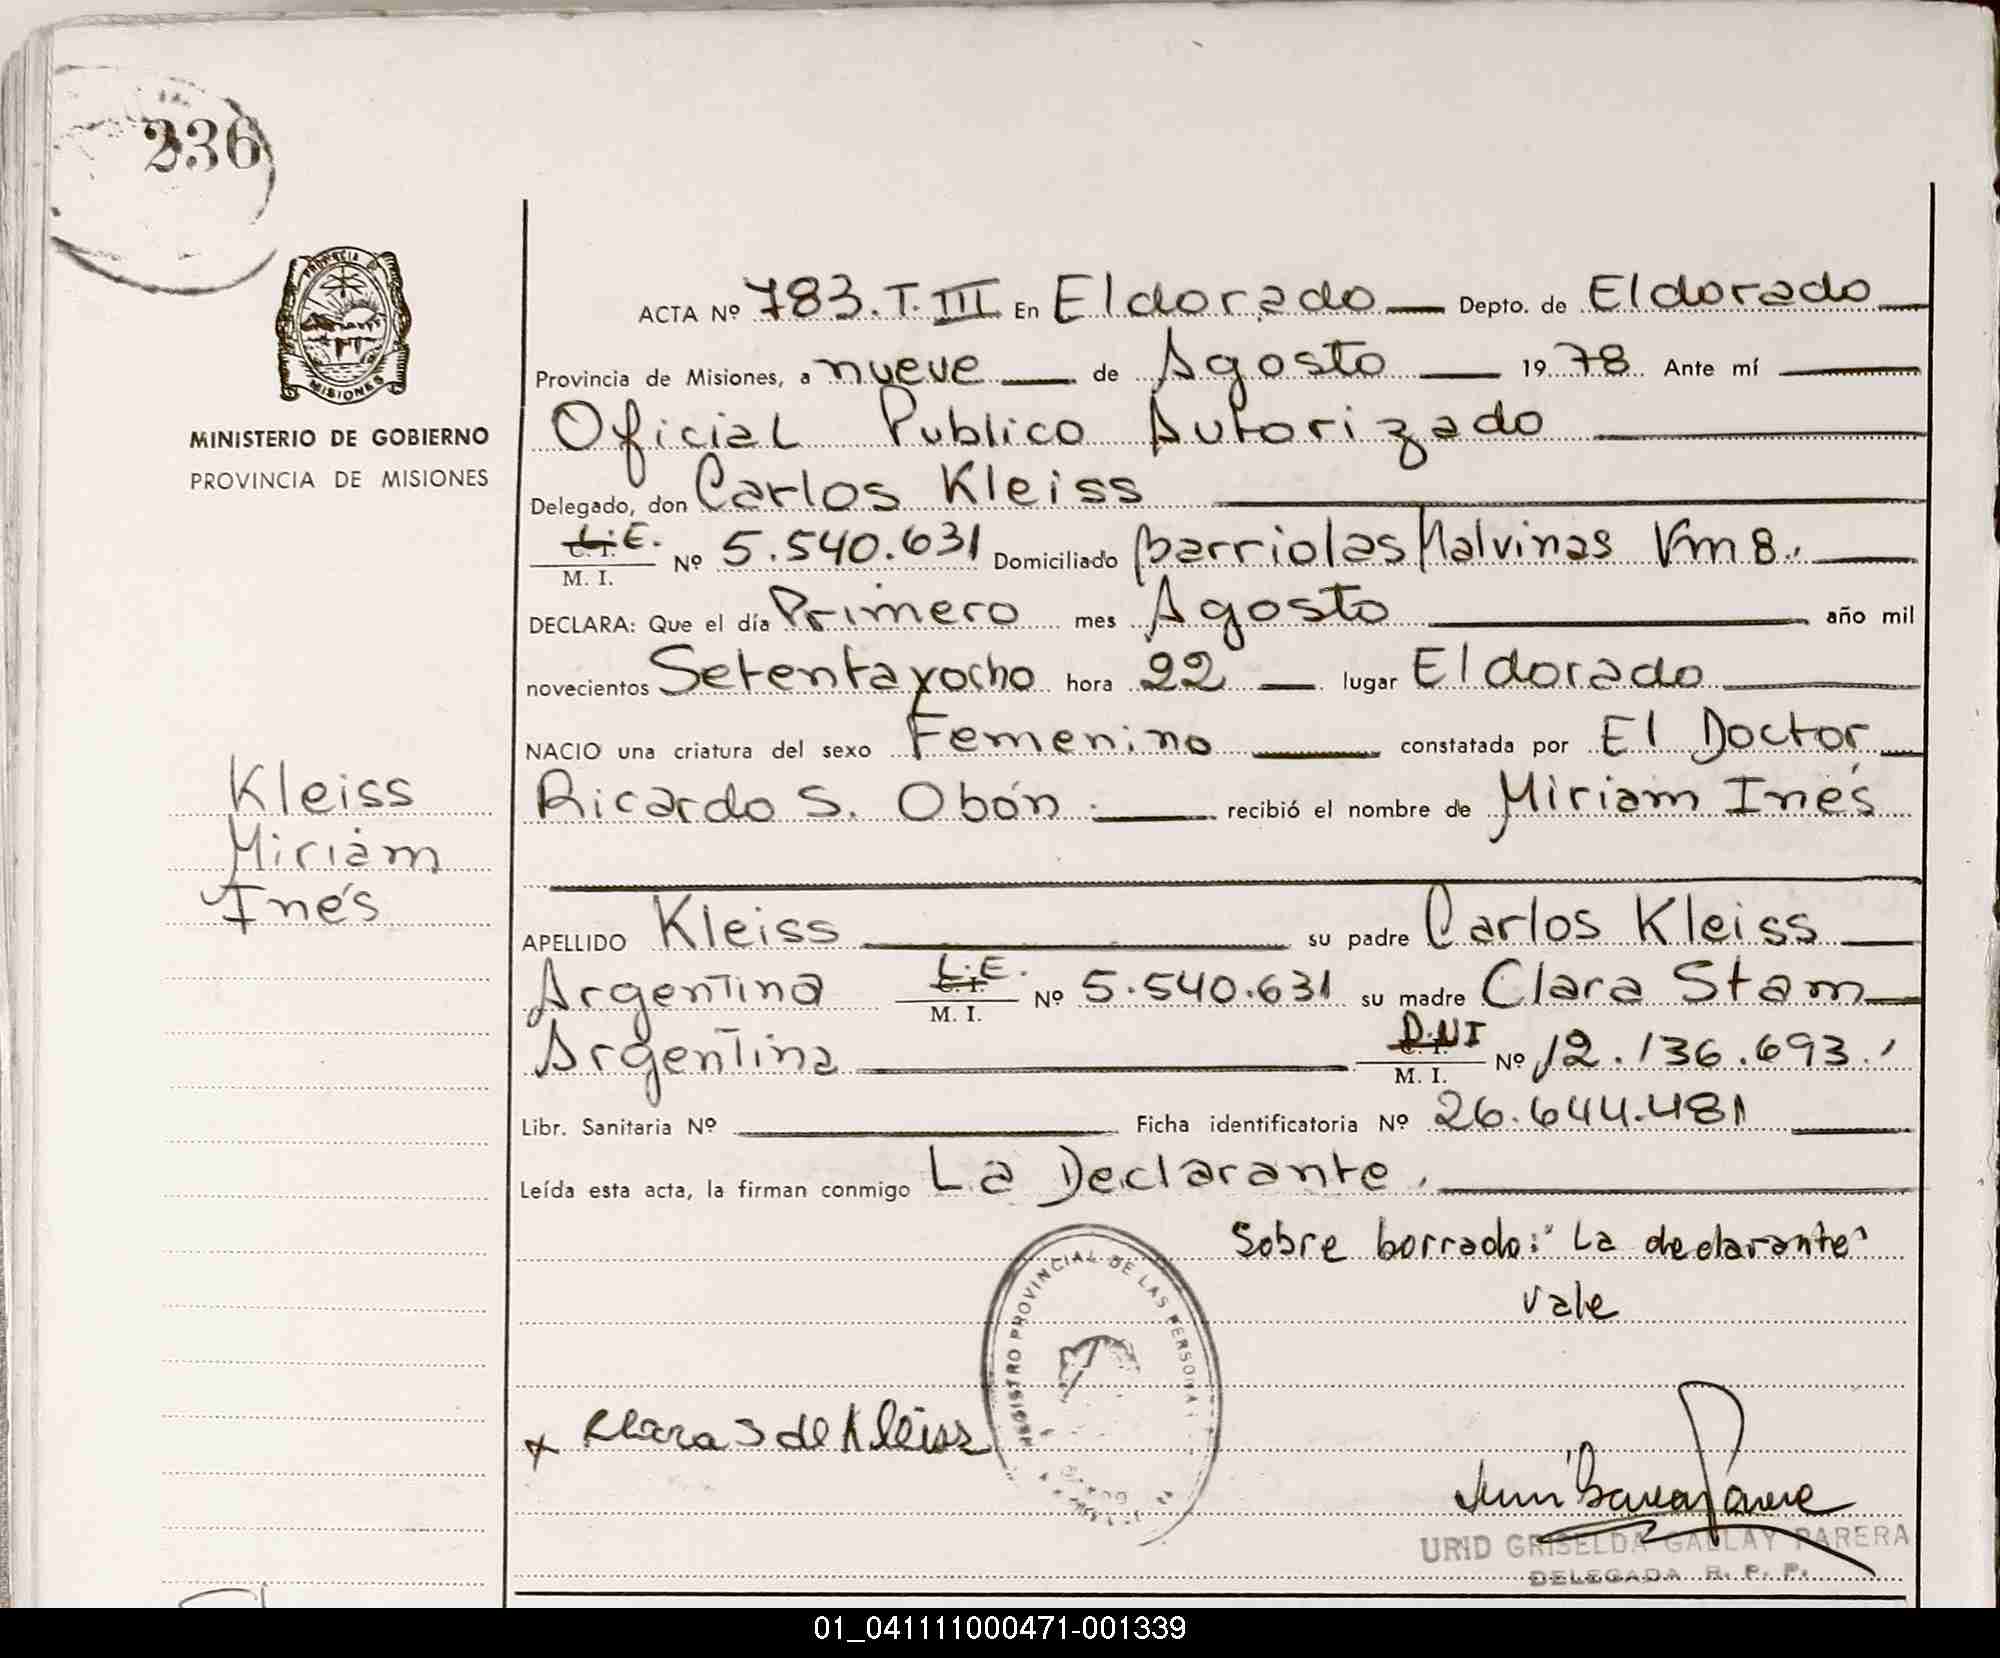 236
PROVINCIA DE
MISIONES
MINISTERIO DE GOBIERNO
PROVINCIA DE MISIONES
ACTA Nº 783. T. III En Eldorado Depto. de Eldorado
Provincia de Misiones, a nueve de Agosto 1978 Ante mí
Oficial Publico Autorizado
Delegado, don Carlos Kleiss
L.E. C. I. M. I. Nº 5.540.631 Domiciliado Barrio las Malvinas Km 8.
DECLARA: Que el día Primero mes Agosto año mil
novecientos Setentayocho hora 22 lugar Eldorado
NACIO una criatura del sexo Femenino constatada por El Doctor
Ricardo S. Obón. recibió el nombre de Miriam Inés
Kleiss
Miriam
Inés
APELLIDO Kleiss su padre Carlos Kleiss
Argentina L.E. C. I. M. I. Nº 5.540.631 su madre Clara Stam
Argentina D.N.I C. I. M. I. Nº 12.136.693.
Libr. Sanitaria Nº Ficha identificatoria Nº 26.644.481
Leída esta acta, la firman conmigo La Declarante.
Sobre borrado: "La declarante"
vale
REGISTRO PROVINCIAL DE LAS PERSONAS
x Clara S de Kleiss
URID GRISELDA GALLAY PARERA
DELEGADA R. P. P.
01_041111000471-001339